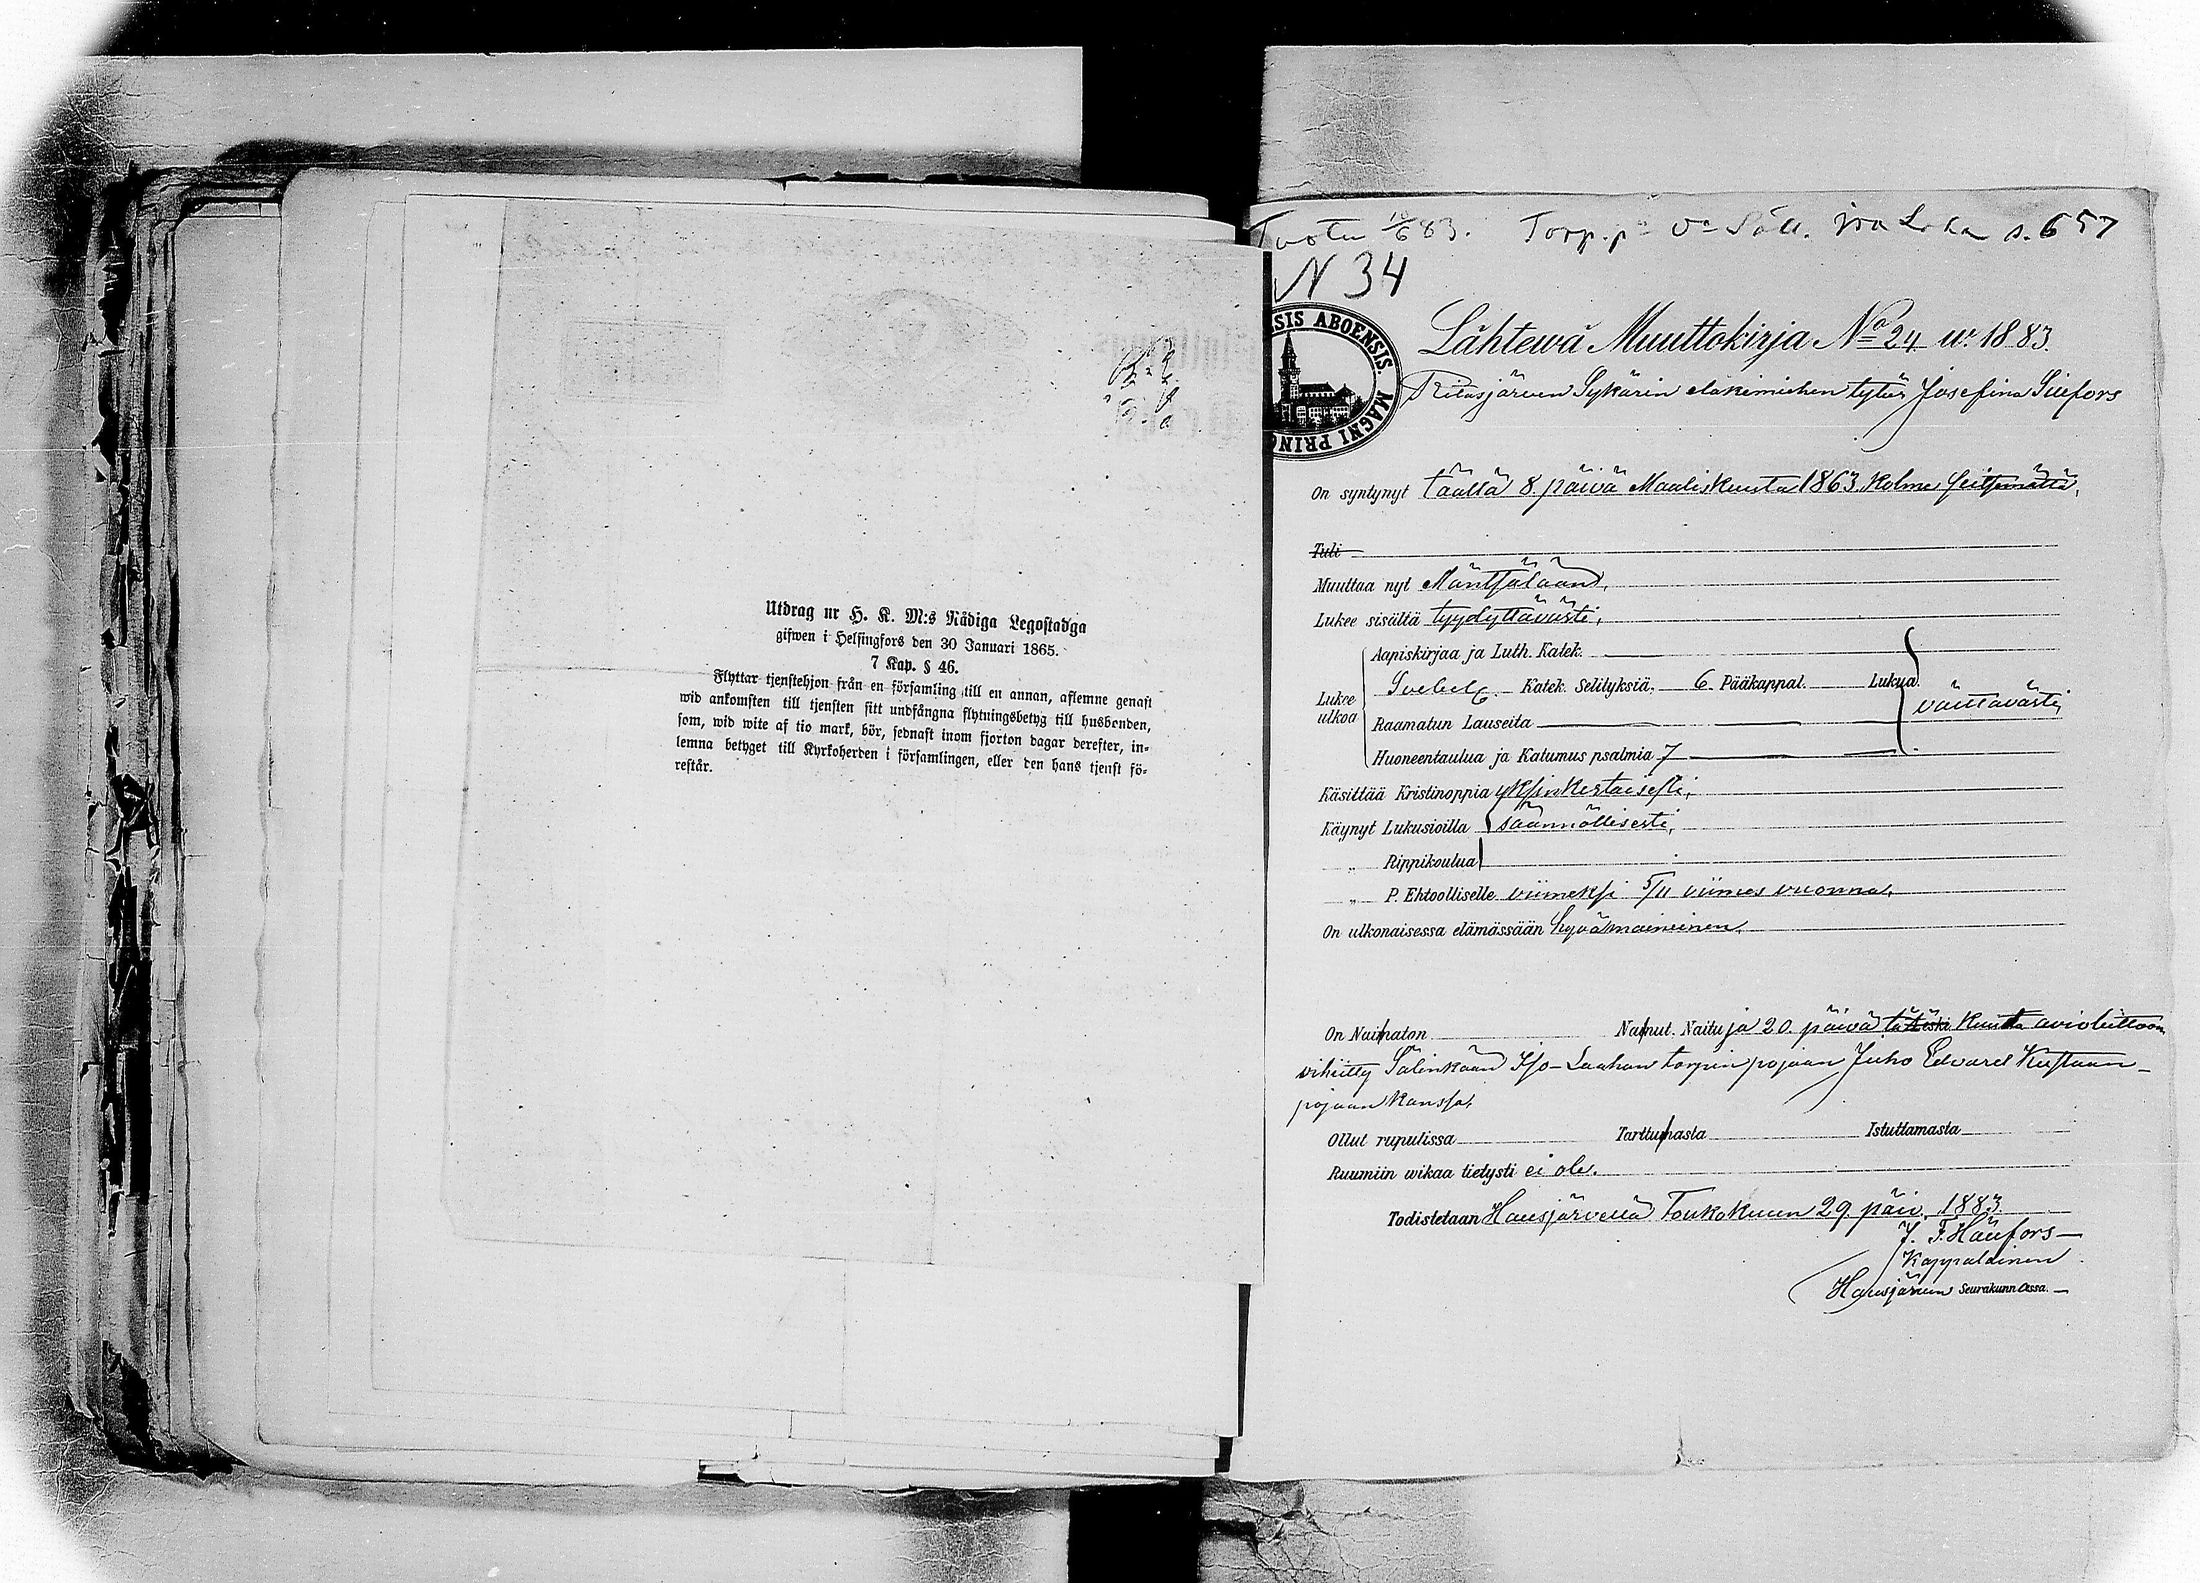 Utdrag ur H. K. M:s Nådiga Legostadga
gifwen i Helsingfors den 30 Januari 1865.
7 Kap. § 46.
Flyttar tjenstehjon från en församling till en annan, aflemne genast
wid ankomsten till tjensten sitt undfångna flytningsbetyg till husbonden,
som, wid wite af tio mark, bör, sednast inom fjorton dagar derefter, in-
lemna betyget till Kyrkoherden i församlingen, eller den hans tjenst fö-
restår.
Tuotu 10/6 83. Torp. p:a s. 657
N 34
SIS ABOENSIS. MAGNI PRINC
Lähtewä Muuttokirja No 24 w. 1883.
Sykärin tytär Josefina
On syntynyt täällä 8 päivä Maaliskuuta 1863. kolme seitsemättä,
Tuli
Muuttaa nyt Mäntsälään,
Lukee sisältä tyydyttävästi,
Aapiskirjaa ja Luth. Katek.
Lukee ulkoa
Katek. Selityksiä. 6 Pääkappal. Lukua.
välttävästi,
Raamatun Lauseita
Huoneentaulua ja Katumus psalmia 7
Käsittää Kristinoppia yksinkertaisesti,
Käynyt Lukusioilla säännöllisesti,
„ Rippikoulua
„ P. Ehtoolliselle viimeksi 5/11 viimes vuonna,
On ulkonaisessa elämässään hyvämaineinen,
On Naimaton Nainut. Naitu ja 20 päivä kuuta avioliittoon
vihitty Sälinkään Iso-Laahan torpin pojan Juho Edvard Kustaan-
pojan kanssa,
Ollut rupulissa Tarttumasta Istuttamasta
Ruumiin wikaa tietysti ei ole.
Todistetaan Hausjärvellä Toukokuun 29 päiv. 1883.
J. F.
Kappalainen
Hausjärven Seurakunnassa.